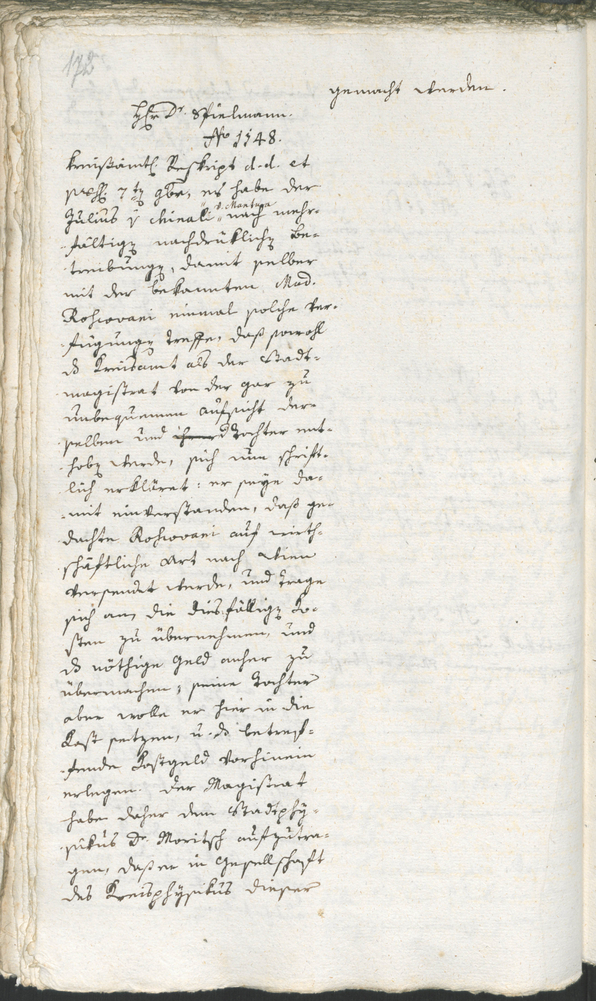 172
gemacht werden.
Hr. Dr. Spielmann.
No 1548.
Kreisämtl. Reskript d. d. et
7 9br, es habe der
Julius v Chinali v. Mantua nach mehr-
fältigen nachdrücklichen Be-
treibungen, damit selber
mit der bekannten Mad.
einmal solche Ver-
fügungen treffe, daß sowohl
das Kreisamt als der Stadt-
magistrat von der gar zu
unbequemen Aufsicht der-
selben und Tochter ent-
hoben werde, sich nun schrift-
lich erkläret: er seye da-
mit einverstanden, daß ge-
dachte auf wirth-
schäftliche Art nach Wien
versendet werde, und trage
sich an, die diesfälligen Ko-
sten zu übernehmen, und
das nöthige Geld anher zu
übermachen, seine Tochter
aber wolle er hier in die
Kost setzen, u. das betref-
fende Kostgeld vorhinein
erlegen. Der Magistrat
habe daher dem Stadtphy-
sikus Dr. Moritsch aufzutra-
gen, daß er in Gesellschaft
des Kreisphysikus dieser